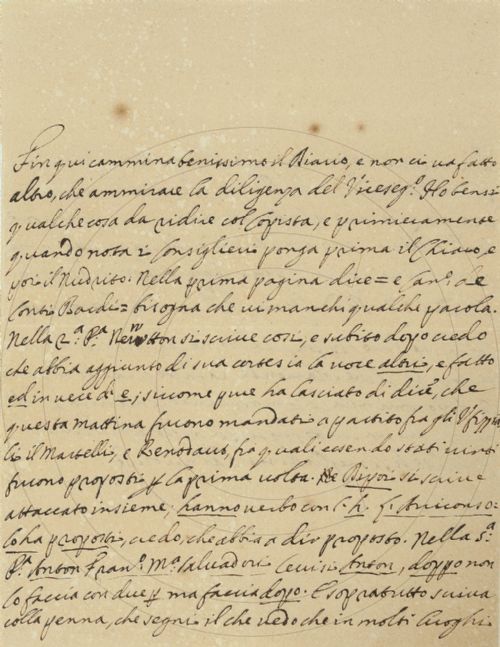 Fin qui cammina benissimo il Diario, e non ci va fatto
altro, che ammirare la diligenza del Viceseg.º Ho bensì
qualche cosa da ridire col Copista, e primieramente
quando nota i Consiglieri ponga prima il Chiaro, e
poi il Nudrito. Nella prima pagina dice = e Can.º de
Conti Bardi = bisogna che vi manchi qualche parola.
Nella 2.ª P.ª Newtton si scrive così, e subito dopo credo
che abbia aggiunto di sua cortesia la voce altri, e fatto
ed in vece di e; siccome pure ha lasciato di dire, che
questa mattina furono mandati a partito fra gli Ufizia
li il Martelli, e Renodaut, fra quali essendo stati vinti
furono proposti p la prima volta. Ne si scrive
attaccato insieme; hanno verbo con
ha proposti, credo, che abbia a dir proposto. Nella 5.ª
P.ª Anton Fran.º M.ª Salvadori Anton, doppo non
lo faccia con due p ma faccia dopo. E sopratutto scriva
colla penna, che segni il che vedo che in molti luoghi